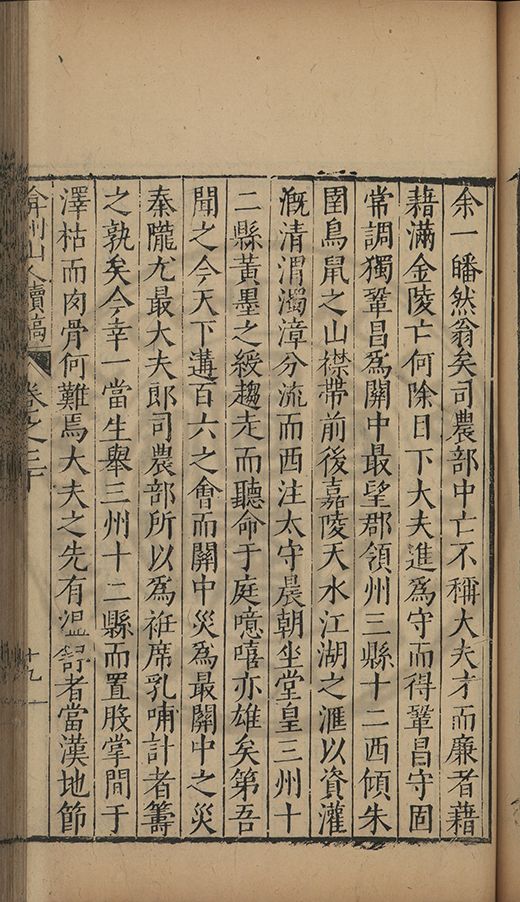 余一皤然翁矣司農部中亡不稱大夫才而廉者藉
藉滿金陵亡何除目下大夫進爲守而得鞏昌守固
常調獨鞏昌爲關中最望郡領州三縣十二西傾朱
圉鳥鼠之山襟帶前後嘉陵天水江湖之滙以資灌
漑清渭濁漳分流而西注太守晨朝坐堂皇三州十
二縣黃墨之綬趨走而聽命于庭噫嘻亦雄矣第吾
聞之今天下遘百六之會而關中災爲最關中之災
秦隴尤最大夫郎司農部所以爲袵席乳哺計者籌
之孰矣今幸一當生舉三州十二縣而置股掌間于
澤枯而肉骨何難焉大夫之先有溫舒者當漢地節
弇州山人續稿
卷之三十
十九